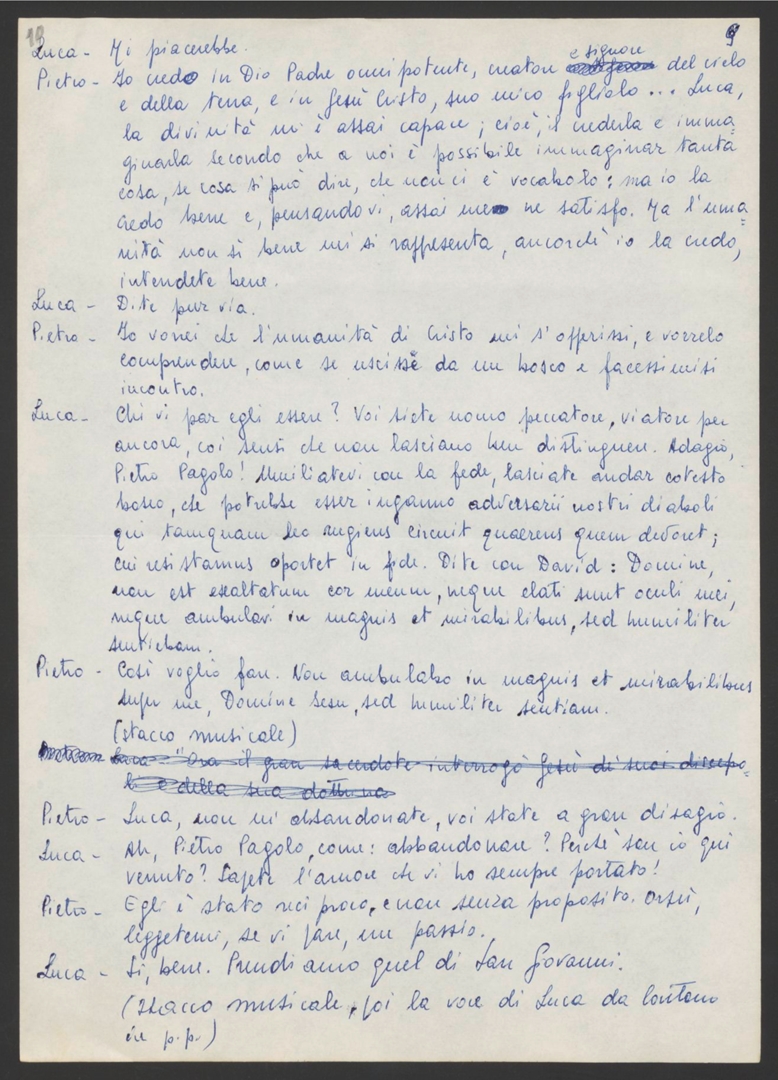 19
9
Luca - Mi piacerebbe.
e signore
Pietro - Io credo in Dio Padre onnipotente, creatore del cielo
e della terra, e in Gesù Cristo, suo unico figliolo... Luca,
la divinità mi è assai capace; cioè, il crederla e imma=
ginarla secondo che a noi è possibile immaginar tanta
cosa, se cosa si può dire, che non ci è vocabolo: ma io la
credo bene e, pensandovi, assai me ne satisfo. Ma l'uma=
nità non sì bene mi si rappresenta, ancorché io la credo,
intendete bene.
Luca - Dite pur via.
Pietro - Io vorrei che l'umanità di Cristo mi s'offerissi, e vorrelo
comprendere, come se uscissè da un bosco e facessimisi
incontro.
Luca - Chi vi par egli essere? Voi siete uomo peccatore, viatore per
ancora, coi sensi che non lasciano ben distinguere. Adagio,
Pietro Pagolo! Umiliatevi con la fede, lasciate andar cotesto
bosco, che potrebbe esser inganno adversarii nostri diaboli
qui tamquam leo rugiens circuit quaerens quem devoret;
cui resistamus oportet in fide. Dite con David: Domine,
non est exaltatum cor meum, neque elati sunt oculi mei,
neque ambulavi in magnis et mirabilibus, sed humiliter
sentiebam.
Pietro - Così voglio fare. Non ambulabo in magnis et mirabilibus
super me, Domine Jesu, sed humiliter sentiam.
(stacco musicale)
Luca - "Ora il gran sacerdote interrogò Gesù di suoi discepo=
li e della sua dottrina
Pietro - Luca, non m'abbandonate, voi state a gran disagio.
Luca - Ah, Pietro Pagolo, come: abbandonare? Perché son io qui
venuto? Sapete l'amore che vi ho sempre portato!
Pietro - Egli è stato reciproco, e non senza proposito. Orsù,
leggetemi, se vi pare, un passio.
Luca - Sì, bene. Prendiamo quel di San Giovanni.
(stacco musicale, poi la voce di Luca da lontano
in p.p.)